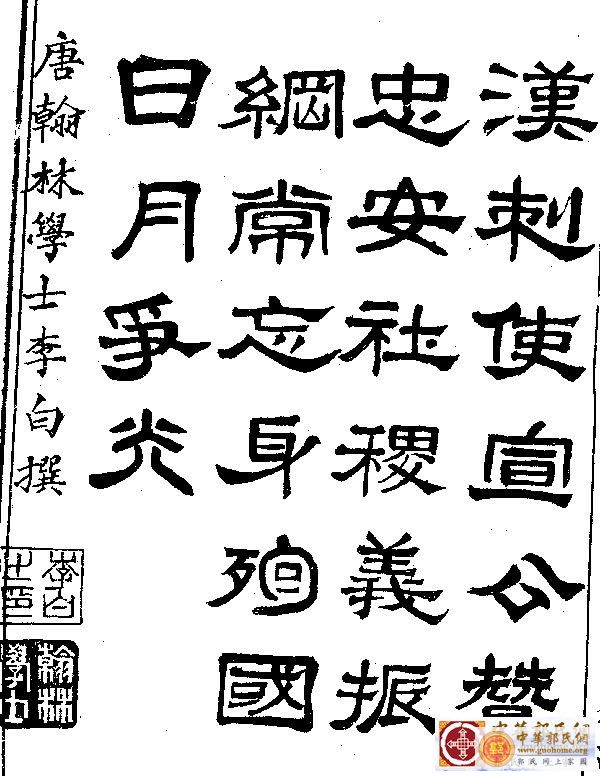 漢刺使宣公贊
忠安社稷義振
綱常忘身殉國
日月爭光
唐翰林學士李白撰
李白
之印
翰林
學士
中華郭氏網
www.guohome.org
郭氏网上家园